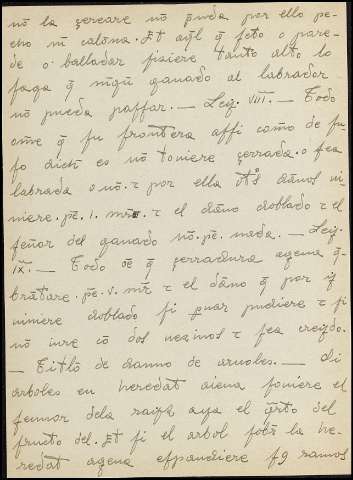 nõ la çercare nõ p̃nda por ello pe-
cho nĩ calõna. Et aq̃l q̃ seto o pare-
de o balladar fiziere tanto alto lo
faga q̃ nĩgũ ganado al labrador
nõ pueda passar. — Ley. VIII. — Todo
om̃e q̃ su frontera assi com̃o de su-
so dicħ es nõ toviere çerrada. o sea
labrada o nõ. τ por ella dãnos vi-
niere. pẽ. i. mr̃. τ el dãno doblado τ el
señor del ganado nõ. pẽ. nada. — Ley.
IX. — Todo õe q̃ çerradura agena q̃-
brãtare. pẽ. v. mr̃ τ el dãno q̃ por y
viniere doblado si puar pudiere τ si
nõ iure cõ dos vezinos τ sea creydo.
— Titlõ de danno de arvoles. — Si
arboles en heredat aiena soviere el
sennor dela rayz aya el q̃rto del
fructo del. Et si el arbol sob̃ la he-
redat agena espandiere sq ramos